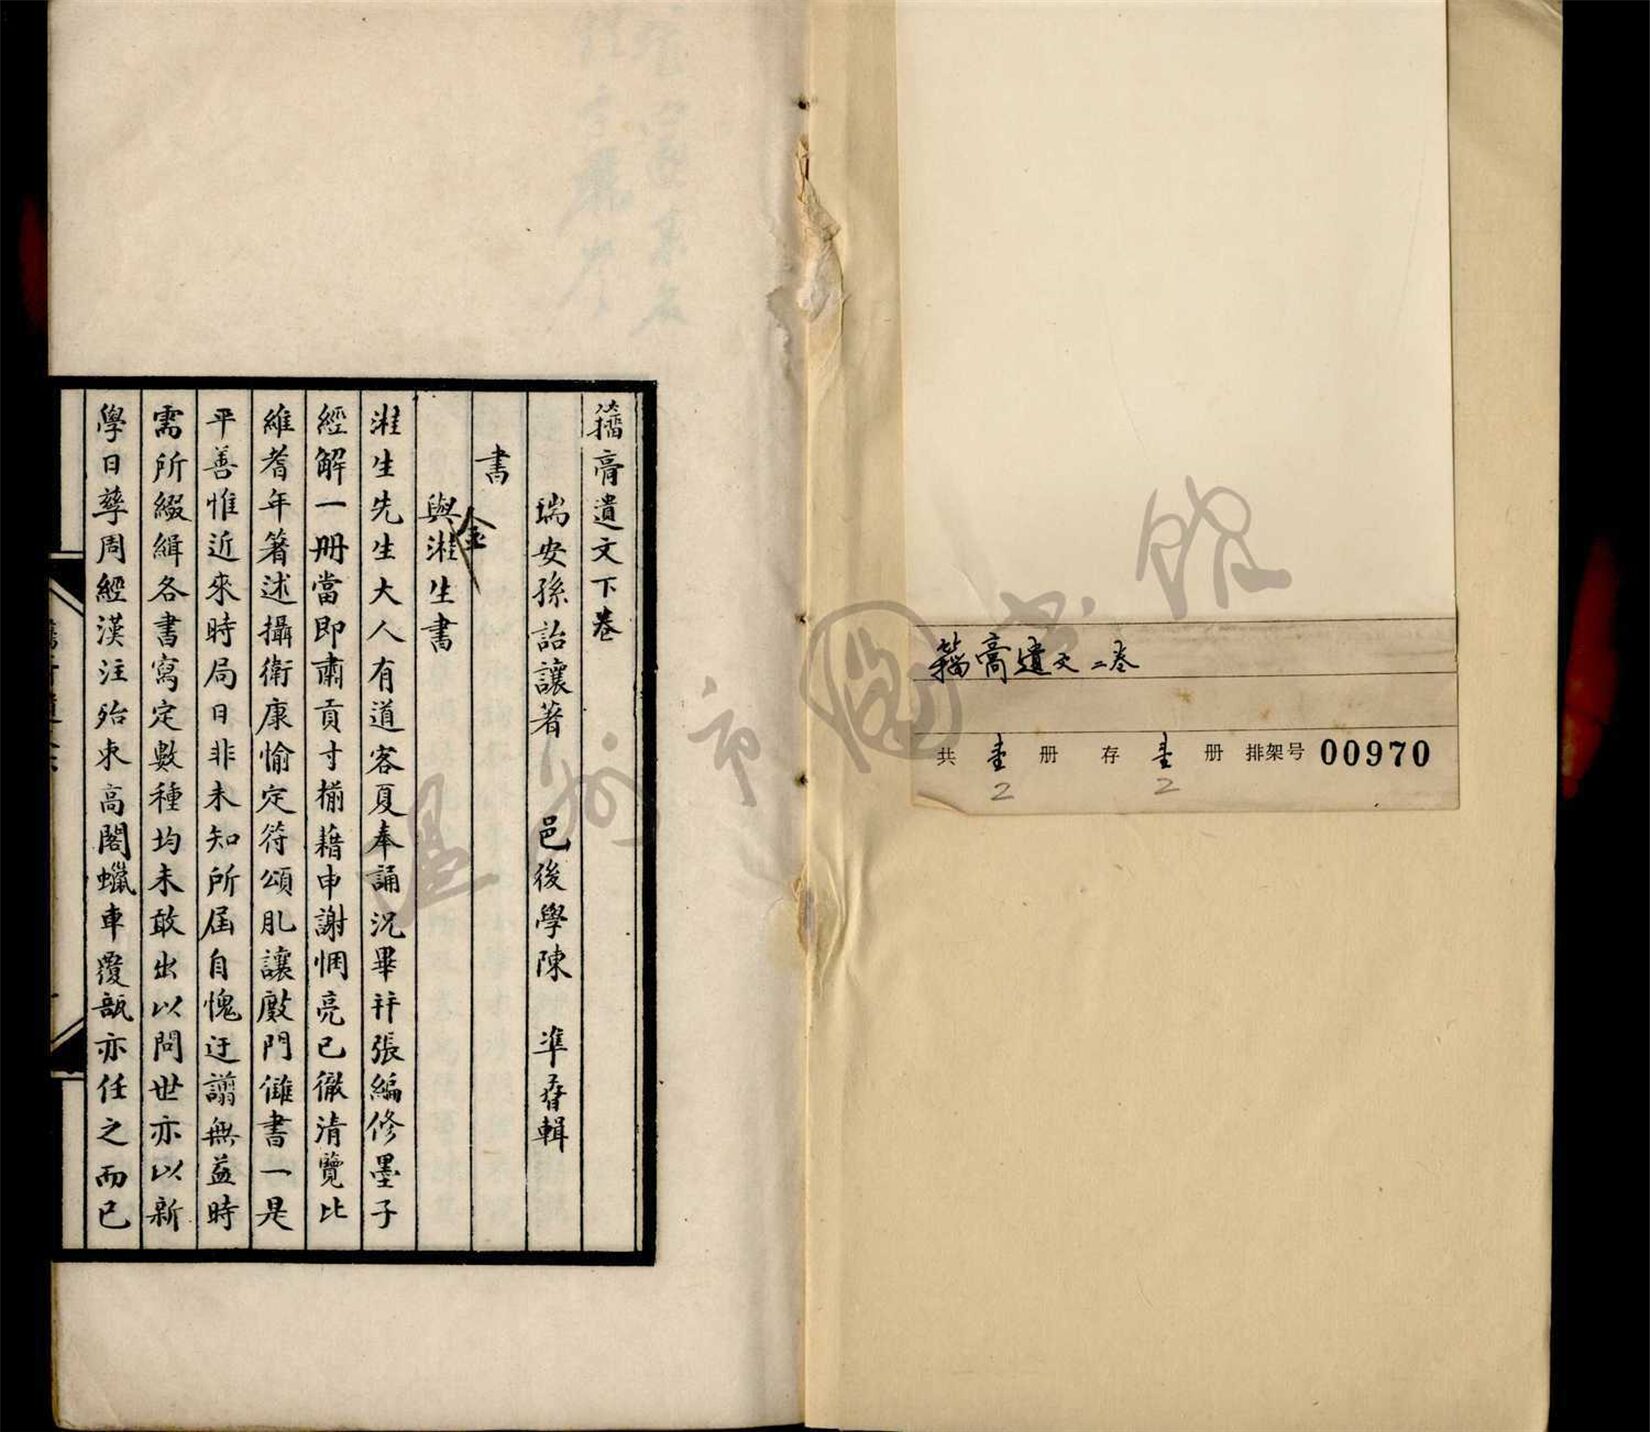 籀膏遺文二卷
共 壹 册 存 壹 册 排架号 00970
2 2
籀膏遺文下卷
瑞安孫詒讓著 邑後學陳 準晉輯
書
與淮生書
金
淮生先生大人有道客夏奉誦況畢并張編修墨子
經解一冊當即肅貢寸椾藉申謝悃亮已徹清覽比
維耆年箸述攝衛康愉定符頌肊讓廏門讎書一是
平善惟近來時局日非未知所屆自愧迂謭無益時
需所綴緝各書寫定數種均未敢出以問世亦以新
學日孳周經漢注殆束高閣蠟車覆瓿亦任之而已
温州市圖书館